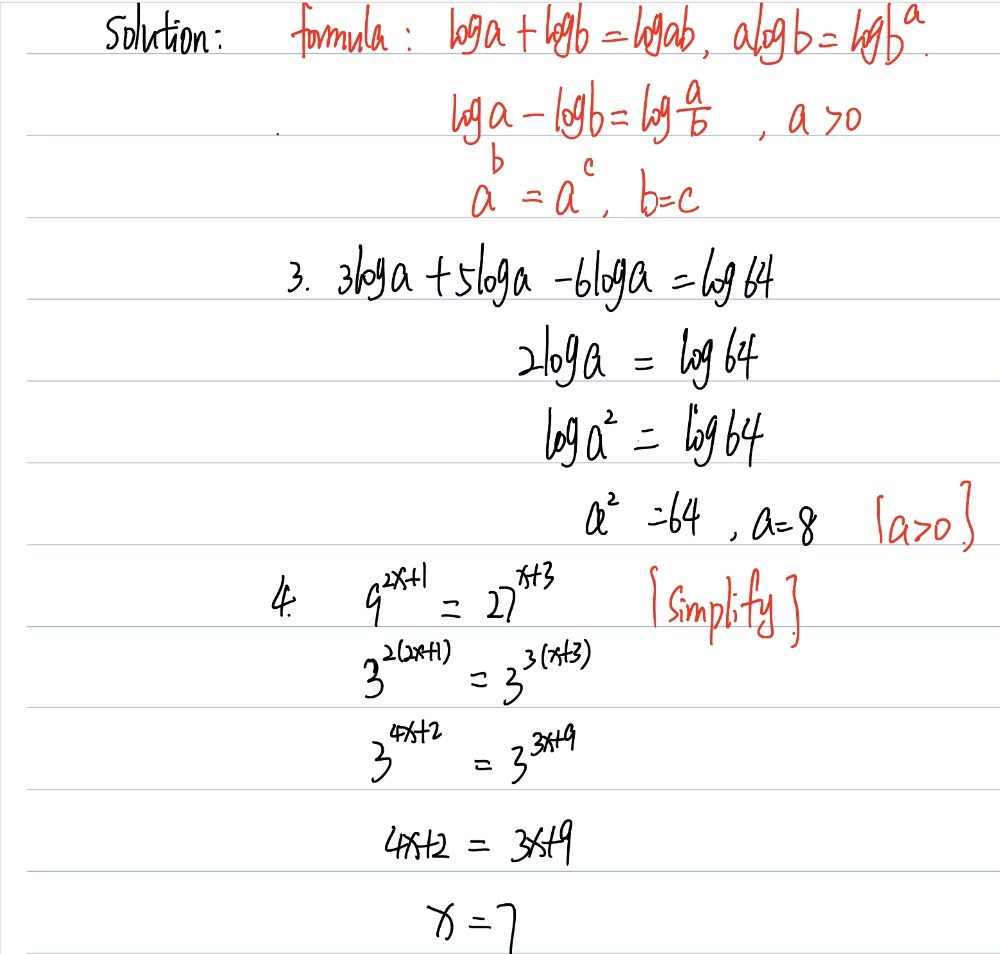 Solution: formula: loga + logb = logab, alogb = logb^a.
loga - logb = log a/b , a >0
a^b = a^c, b=c
3. 3loga + 5loga - 6loga = log64
2loga = log64
loga^2 = log64
a^2 =64 , a=8 [a>0]
4. 9^2x+1 = 27^x+3 [Simplify]
3^2(2x+1) = 3^3(x+3)
3^4x+2 = 3^3x+9
4x+2 = 3x+9
x = 7